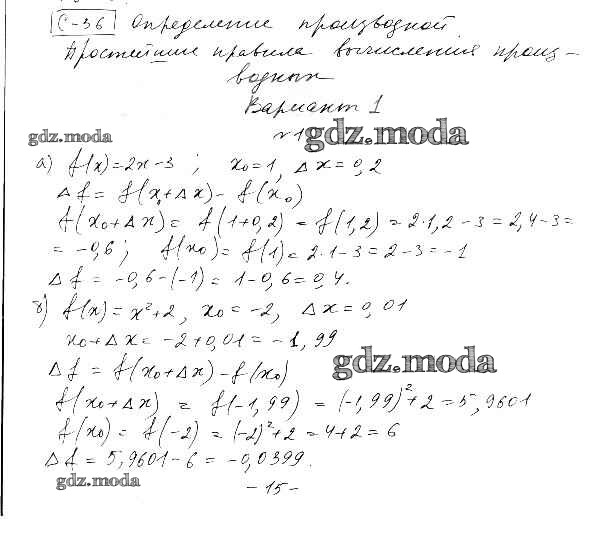 С-36 Определение производной.
Простейшие правила вычисления произ-
водных
Вариант 1
gdz.moda №1 gdz.moda
а) f(x)=2x-3 ; x₀=1, Δx=0,2
Δf = f(x₀+Δx) - f(x₀)
f(x₀+Δx) = f(1+0,2) = f(1,2) = 2·1,2-3 = 2,4-3 =
= -0,6 ; f(x₀) = f(1) = 2·1-3 = 2-3 = -1
Δf = -0,6-(-1) = 1-0,6 = 0,4.
б) f(x) = x²+2, x₀ = -2, Δx = 0,01
x₀+Δx = -2+0,01 = -1,99
Δf = f(x₀+Δx) - f(x₀) gdz.moda
f(x₀+Δx) = f(-1,99) = (-1,99)²+2 = 5,9601
f(x₀) = f(-2) = (-2)²+2 = 4+2 = 6
Δf = 5,9601-6 = -0,0399.
gdz.moda
-15-